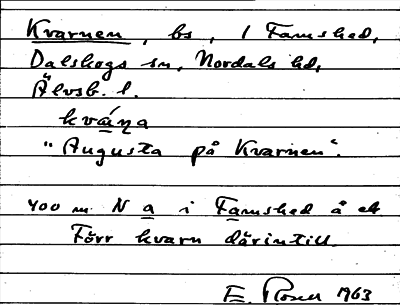 Kvarnen, bs, 1 Famshed,
Dalskogs sn, Nordals hd,
Älvsb. l.
kvá̱ṇa
"Augusta på Kvarnen".
400 m N a i Famshed å ek
Förr kvarn därintill.
E. Rosell 1963